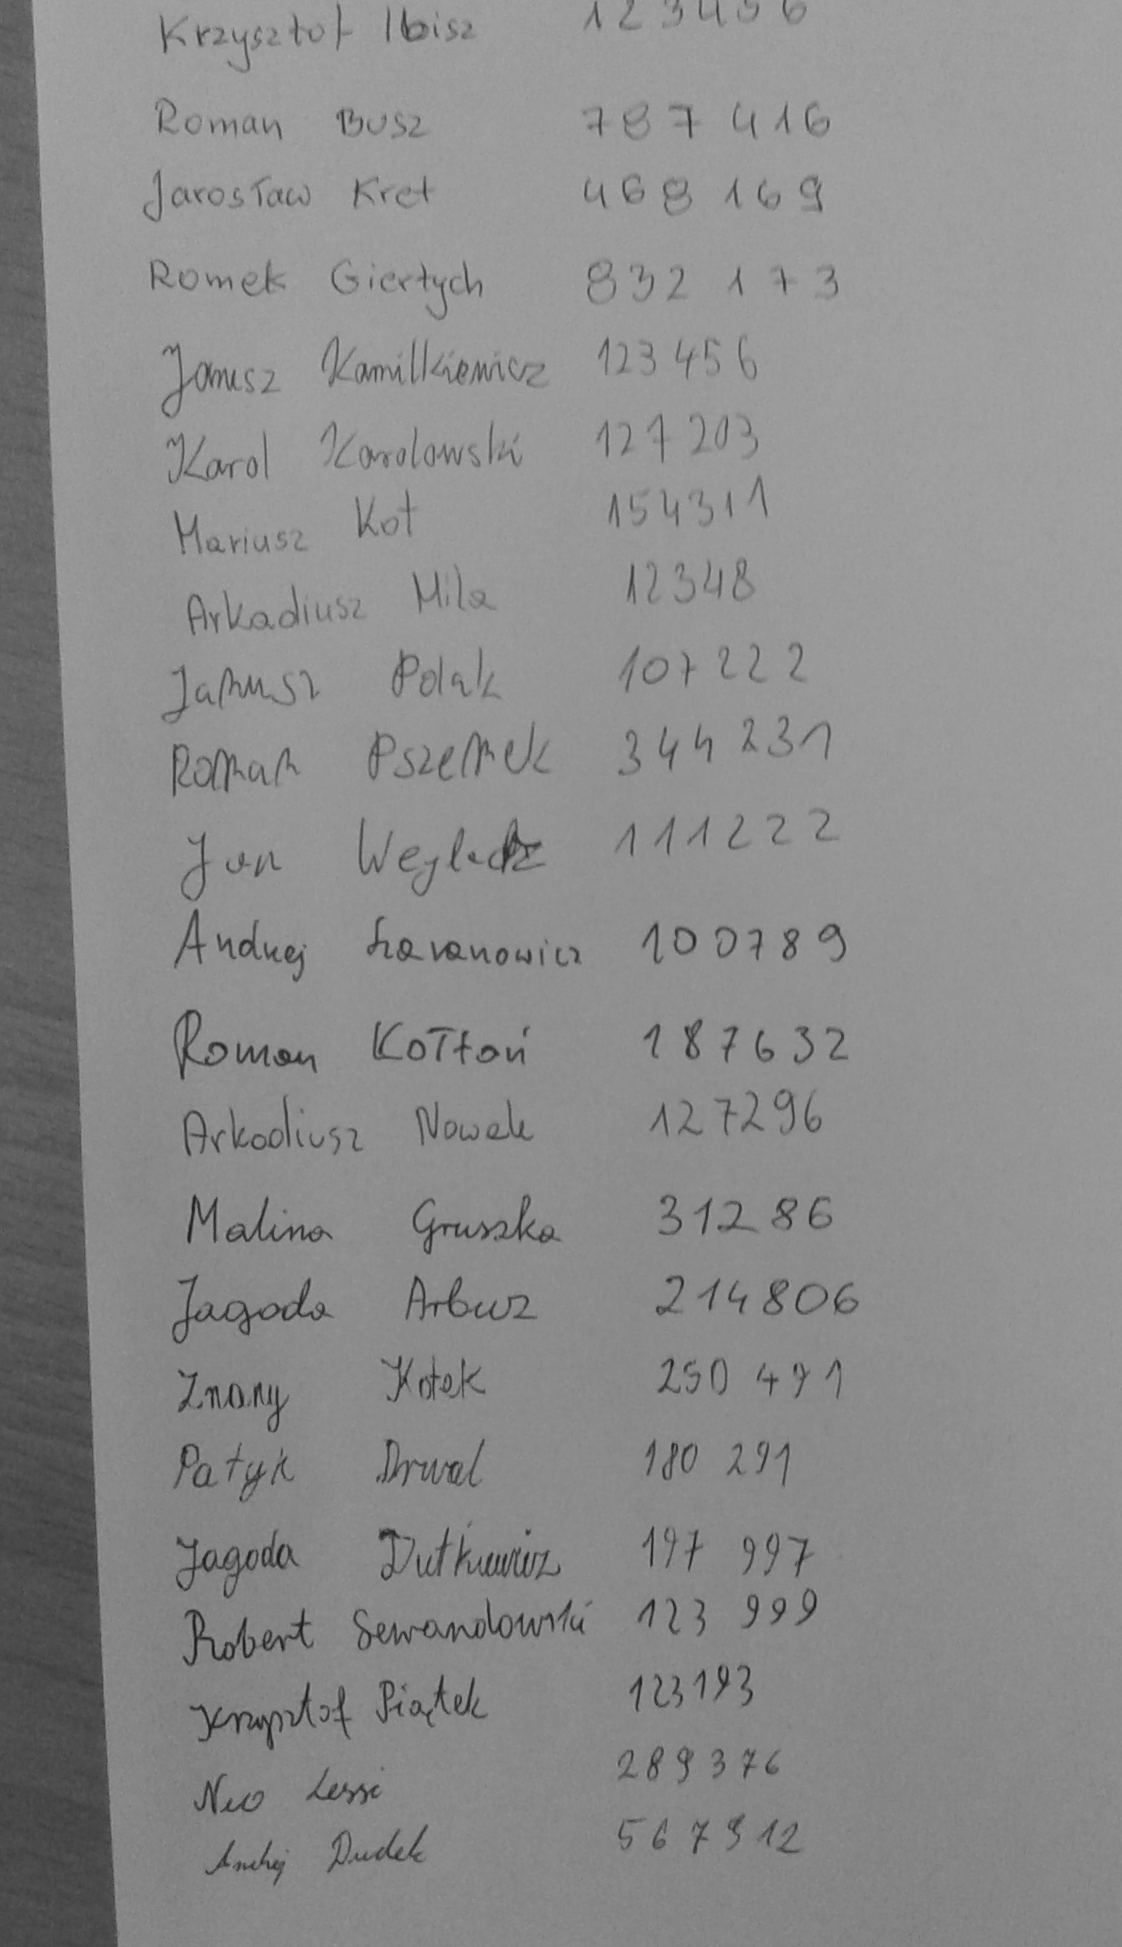 Krzysztof Ibisz 123456
Roman Busz 787416
Jarosław Kret 468 169
Romek Giertych 832 173
Janusz Kamilkiewicz 123456
Karol Karolowski 127203
Mariusz Kot 154311
Arkadiusz Mila 12348
Janusz Polak 107222
Roman Pszemek 344231
Jan 111222
Andrzej 100789
Roman Kołtoń 187632
Arkadiusz Nowak 127296
Malina Gruszka 31286
Jagoda Arbuz 214806
Znany Kotek 250 491
Patyk Drwal 180 291
Jagoda Dutkiewicz 197 997
Robert Lewandowski 123 999
Krzysztof Piątek 123193
Neo Lessi 289376
Andrzej Dudek 567912